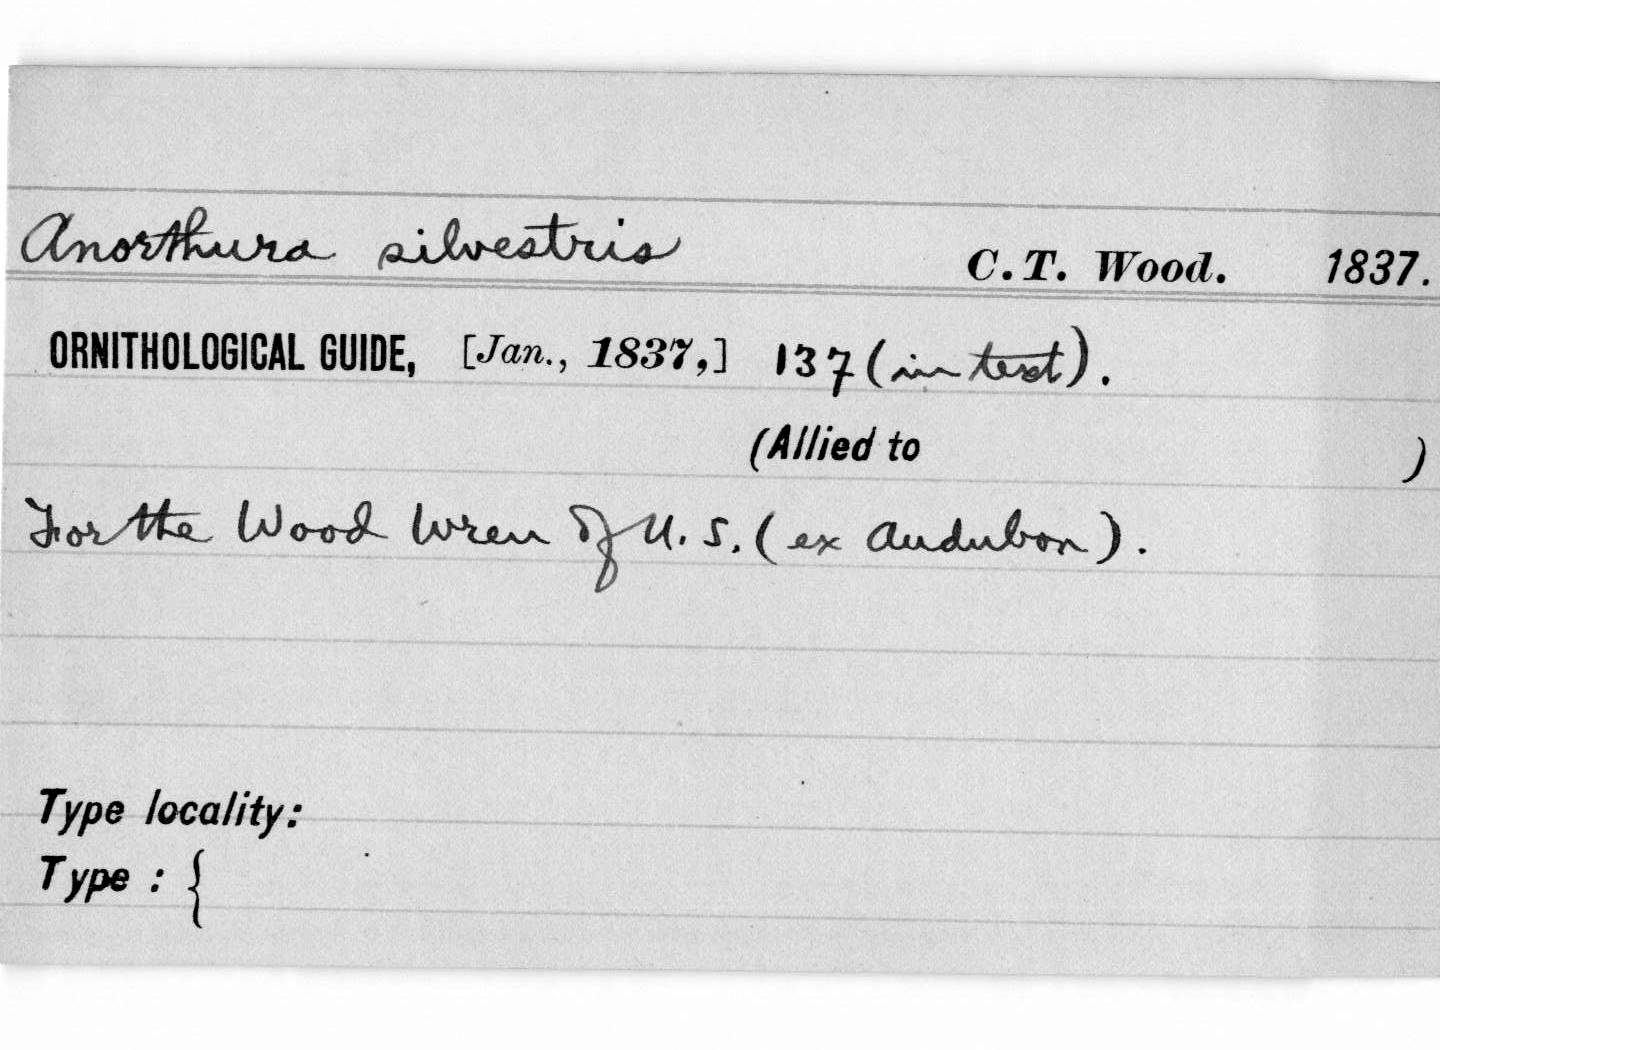 Anorthura silvestris C.T. Wood. 1837.
ORNITHOLOGICAL GUIDE, [Jan., 1837,] 137 (in text).
(Allied to )
For the Wood Wren of U. S. (ex Audubon).
Type locality:
Type : {